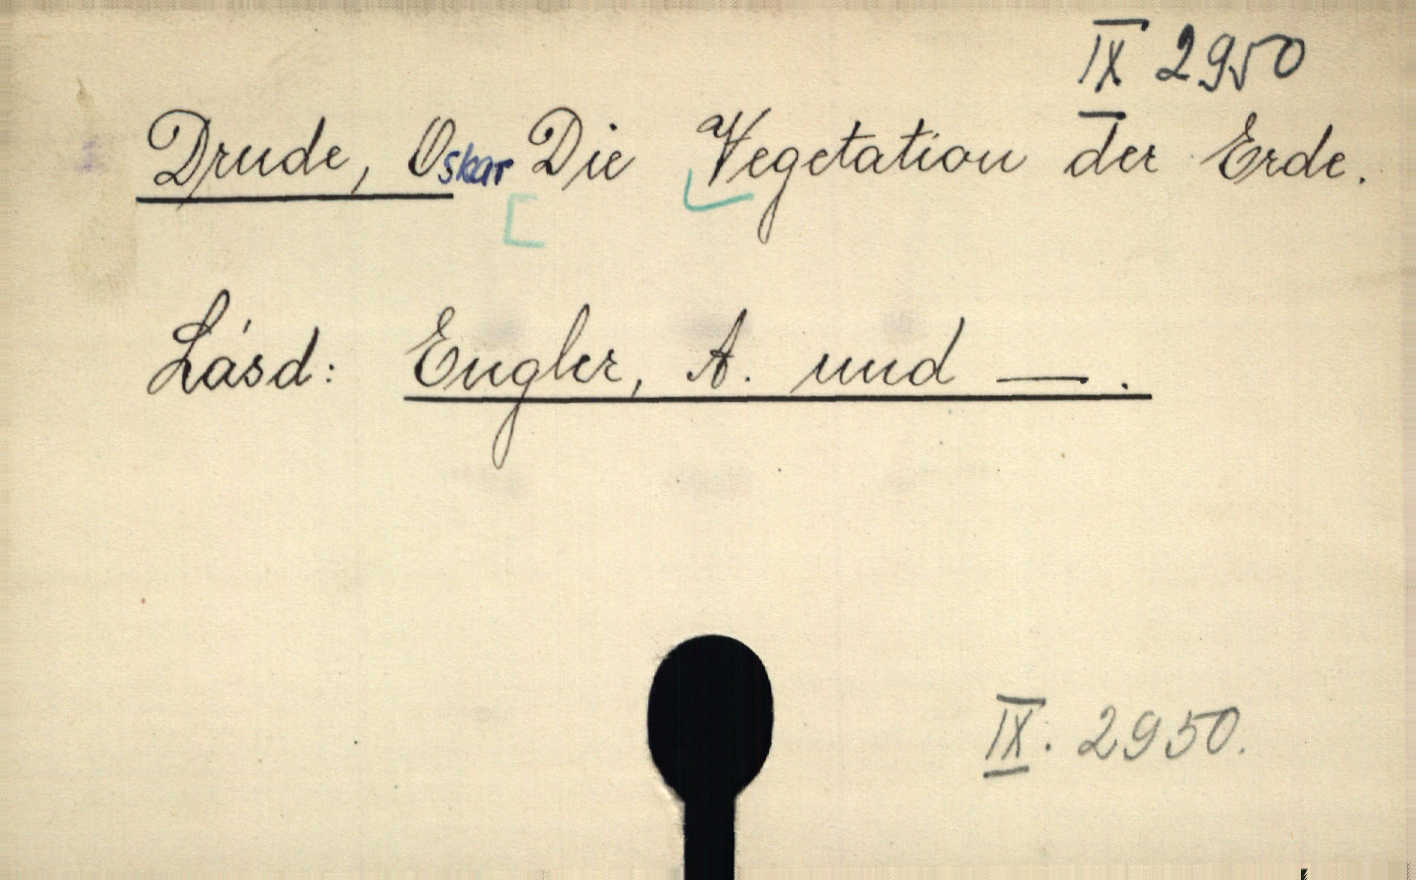 IX 2950
Drude, Oskar Die Vegetation der Erde.
Lásd: Engler, A. und —.
IX. 2950.